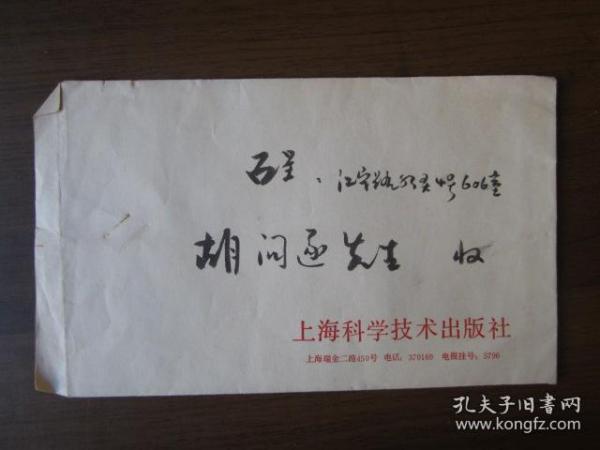 江宁路
4号606室
胡问遂先生 收
上海科学技术出版社
上海瑞金二路450号 电话：370160 电报挂号：5796
孔夫子旧書网
www.kongfz.com